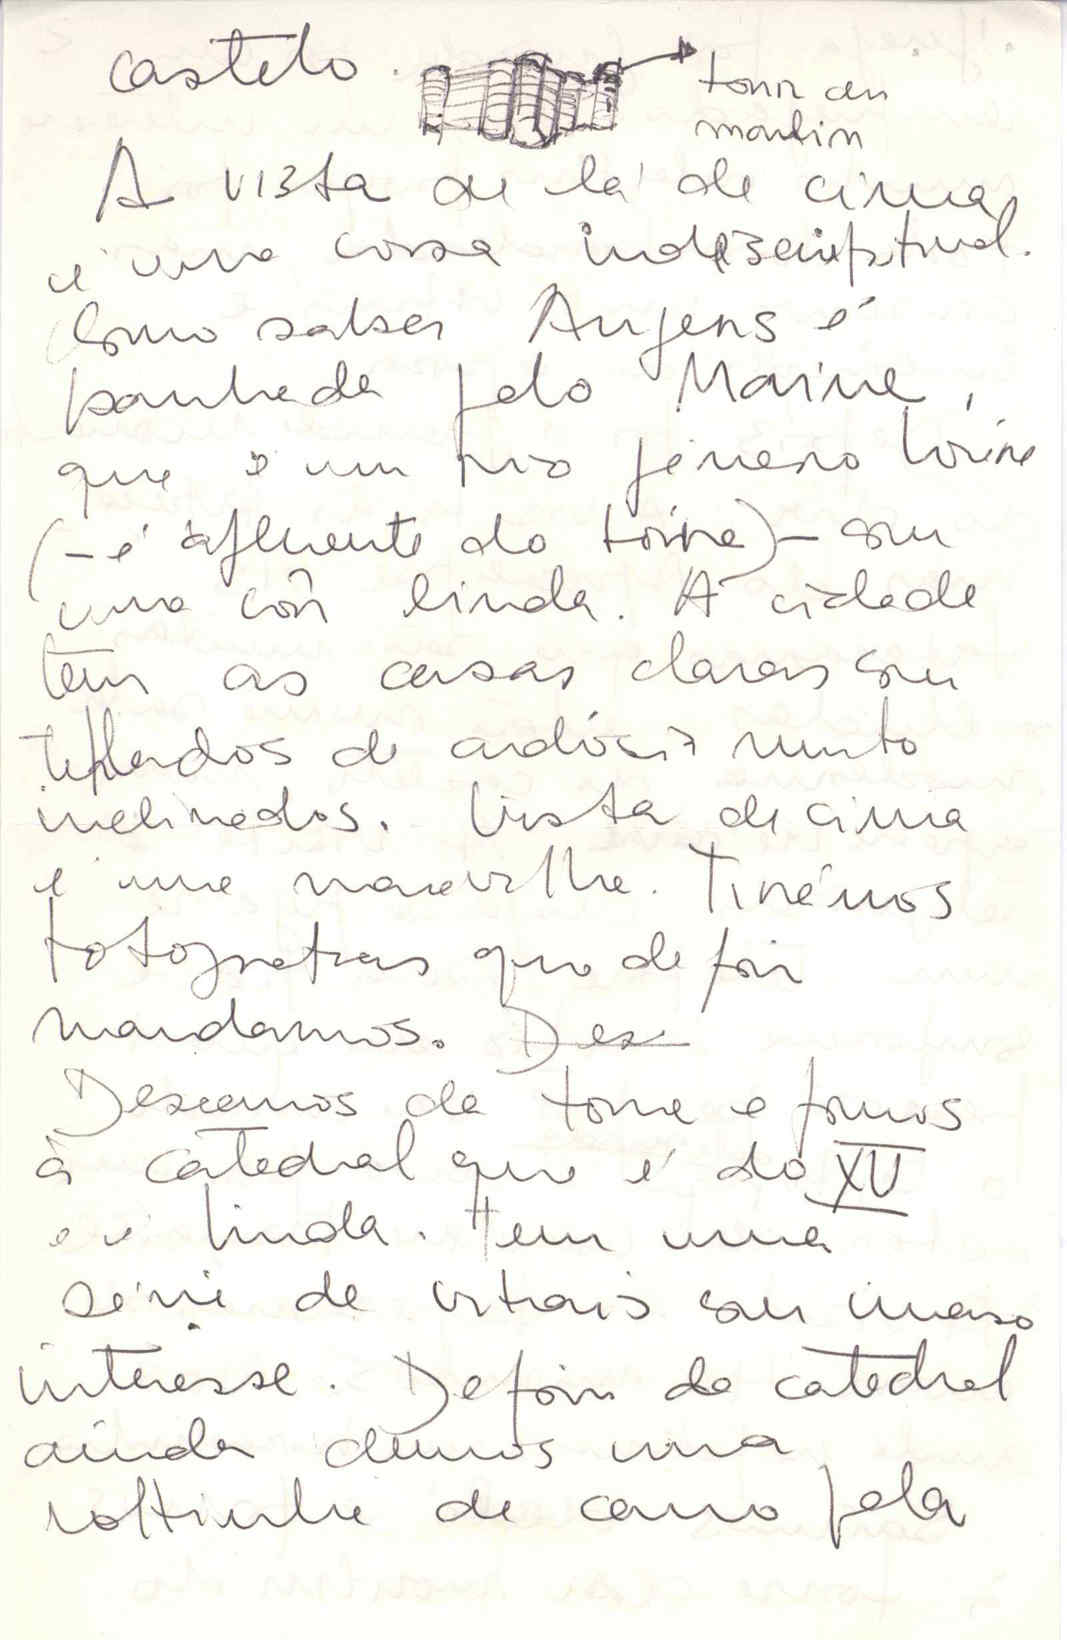 castelo.
torre du
moulin
A vista de lá de cima
é uma coisa indescriptivel.
Como sabes Angers é
banhada pelo Maine,
que é um rio género Loire
(- é afluente do Loire) - com
uma côr linda. A cidade
tem as casas claras com
telhados de ardósia muito
inclinados. Vista de cima
é uma maravilha. Tirámos
fotografias que depois
mandamos. Des
Descemos da torre e fomos
à catedral que é do XV
e é linda. Tem uma
série de vitrais com imenso
interesse. Depois da catedral
ainda demos uma
voltinha de carro pela